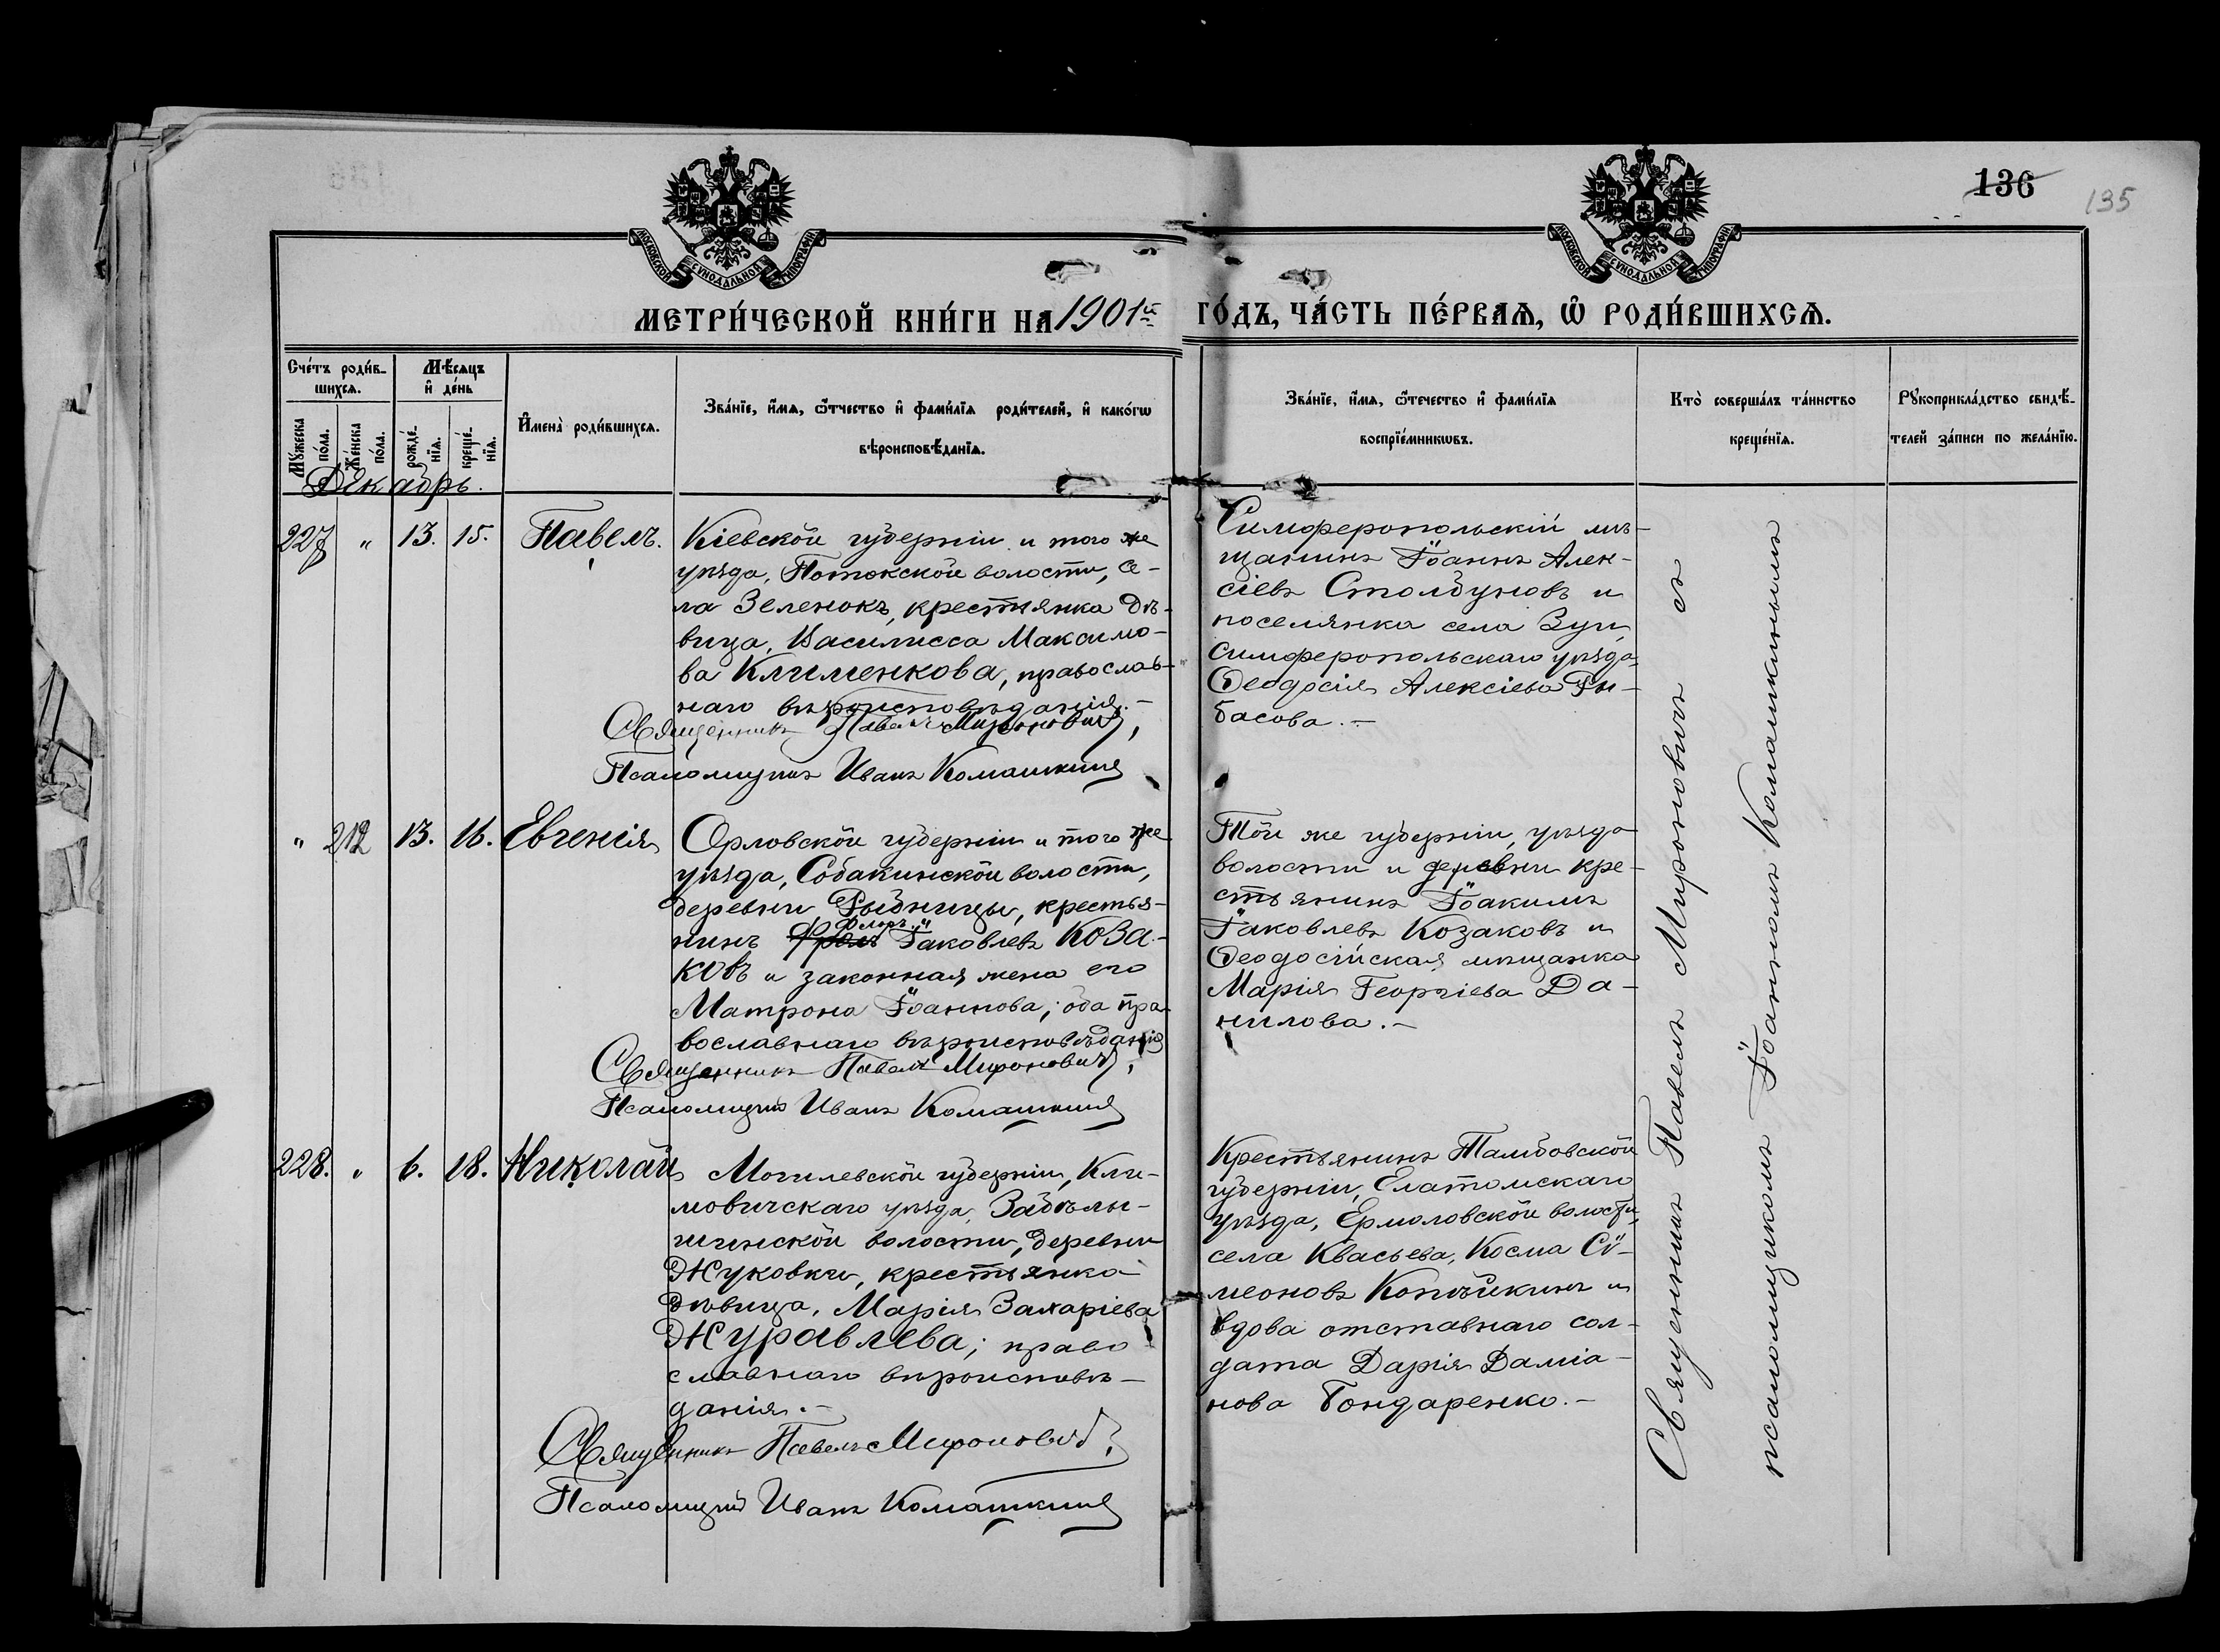 136
135
МОСКОВСКОЙ СУНОДАЛЬНОЙ ТИПОГРАФІИ
МОСКОВСКОЙ СУНОДАЛЬНОЙ ТИПОГРАФІИ
МЕТРИ́ЧЕСКОЙ КНИ́ГИ НА 1901й ГО́ДЪ, ЧА́СТЬ ПЕ́РВАѦ, Ѿ РОДИ́ВШИХСѦ.
Сче́тъ роди́в-
шихсѧ.
Мѣ́сѧцъ
и҆ де́нь
Мꙋ́жеска по́ла.
Же́нска по́ла.
рожде́-
нїѧ.
креще́-
нїѧ.
И҆мена̀ роди́вшихсѧ.
Зва́нїе, и҆́мѧ, ѻ҆́тчество и҆ фами́лїѧ роди́телей, и҆ како́гѡ
вѣроисповѣ́данїѧ.
Зва́нїе, и҆́мѧ, ѻ҆́течество и҆ фами́лїѧ
воспрїе́мникѡвъ.
Кто̀ соверша́лъ та́инство
креще́нїѧ.
Рꙋкоприкла́дство свидѣ́-
телей за́писи по жела́нїю.
Декабрь.
227 " 13. 15. Павелъ.
Кіевской губерніи и того же
уѣзда, Потокской волости, се-
ла Зеленокъ, крестьянка дѣ-
вица, Василисса Максимо-
ва Клименкова, православ-
наго вѣроисповѣданія.-
Священникъ Павелъ Мироновичъ,
Псаломщикъ Иванъ Комашкинъ
Симферопольскій мѣ-
щанинъ Іоаннъ Алек-
сіевъ Столбуновъ и
поселянка села Зуи,
Симферопольскаго уѣзда
Ѳеодосія Алексіева Ры-
басова.-
" 212 13. 16. Евгенія
Орловской губерніи и того же
уѣзда, Собакинской волости,
деревни Рыбницы, крестья-
Флоръ
нинъ Іаковлевъ Коза-
ковъ и законная жена его
Матрона Іоаннова; оба пра-
вославнаго вѣроисповѣданія
Священникъ Павелъ Мироновичъ,
Псаломщикъ Иванъ Комашкинъ
Той же губерніи, уѣзда
волости и деревни кре-
стьянинъ Іоакимъ
Іаковлевъ Козаковъ и
Ѳеодосійская мѣщанка
Марія Георгіева Да-
нилова.-
228. " 6. 18. Николай
Могилевской губерніи, Кли-
мовичскаго уѣзда, Забѣлы-
шинской волости, деревни
Жуковки, крестьянка
дѣвица, Марія Захаріева
Журавлева; право
славнаго вѣроисповѣ-
данія.-
Священникъ Павелъ Мироновичъ,
Псаломщикъ Иванъ Комашкинъ
Крестьянинъ Тамбовской
губерніи, Елатомскаго
уѣзда, Ермоловской волости,
села Квасьева, Косма Сѵ-
меоновъ и
вдова отставнаго сол-
дата Дарія Даміа-
нова Бондаренко.-
Священникъ Павелъ Мироновичъ съ
псаломщикомъ Іоанномъ Комашкинымъ